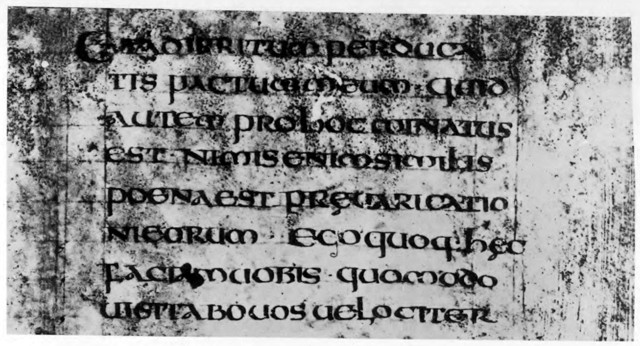 Et ad irritum perduca
tis pactum meum · quid
autem pro hoc minatus
est · nimis enim similis
poena est pręuaricatio
ni ęorum · Ego quoq: hęc
faciam uobis · quomodo
uisitabo uos uelociter